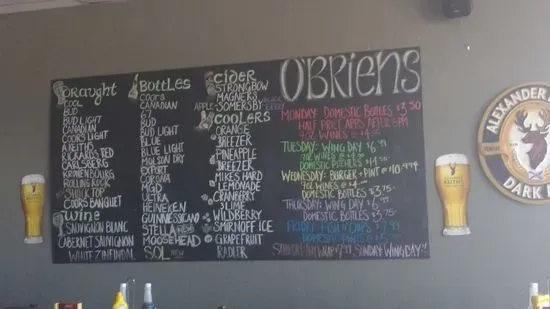 Draught
COOL
BUD
BUD LIGHT
CANADIAN
KEITHS
RICKARDS RED
CARLSBERG
KRONENBOURG
ROLLING ROCK
SHOCK TOP
COORS BANQUET
Wine
SAUVIGNON BLANC
CABERNET SAUVIGNON
WHITE ZINFINDAL
BOTTLES
COORS
CANADIAN
67
BUD
BUD LIGHT
BLUE
BLUE LIGHT
MOLSON DRY
EXPORT
CORONA
MGD
ULTRA
HEINEKEN
GUINNESS CAN
STELLA
MOOSEHEAD
SOL NEW
CIDER
STRONGBOW
MAGNERS
APPLE-SOMERSBY
COOLERS
ORANGE
BREEZER
PINEAPPLE
BREEZER
MIKES HARD
LEMONADE
CRANBERRY
LIME
WILDBERRY
SMIRNOFF ICE
GRAPEFRUIT
RADLER
O'BRIENS
MONDAY: DOMESTIC BOTTLES $3.50
HALF PRICE APPS AFTER 5PM
9OZ WINES @ 4.00
TUESDAY: WING DAY $6.99
9OZ WINES @ 4.00
DOMESTIC PITCHERS $14.50
WEDNESDAY: BURGER + PINT @ 10.99
9OZ WINES @ 4.00
DOMESTIC BOTTLES $3.75
THURSDAY: WING DAY $6.99
DOMESTIC BOTTLES $3.75
FRIDAY: FISH N' CHIPS $7.99
DOMESTIC PINTS
SUNDAY: WING DAY"
ALEXANDER
DARK